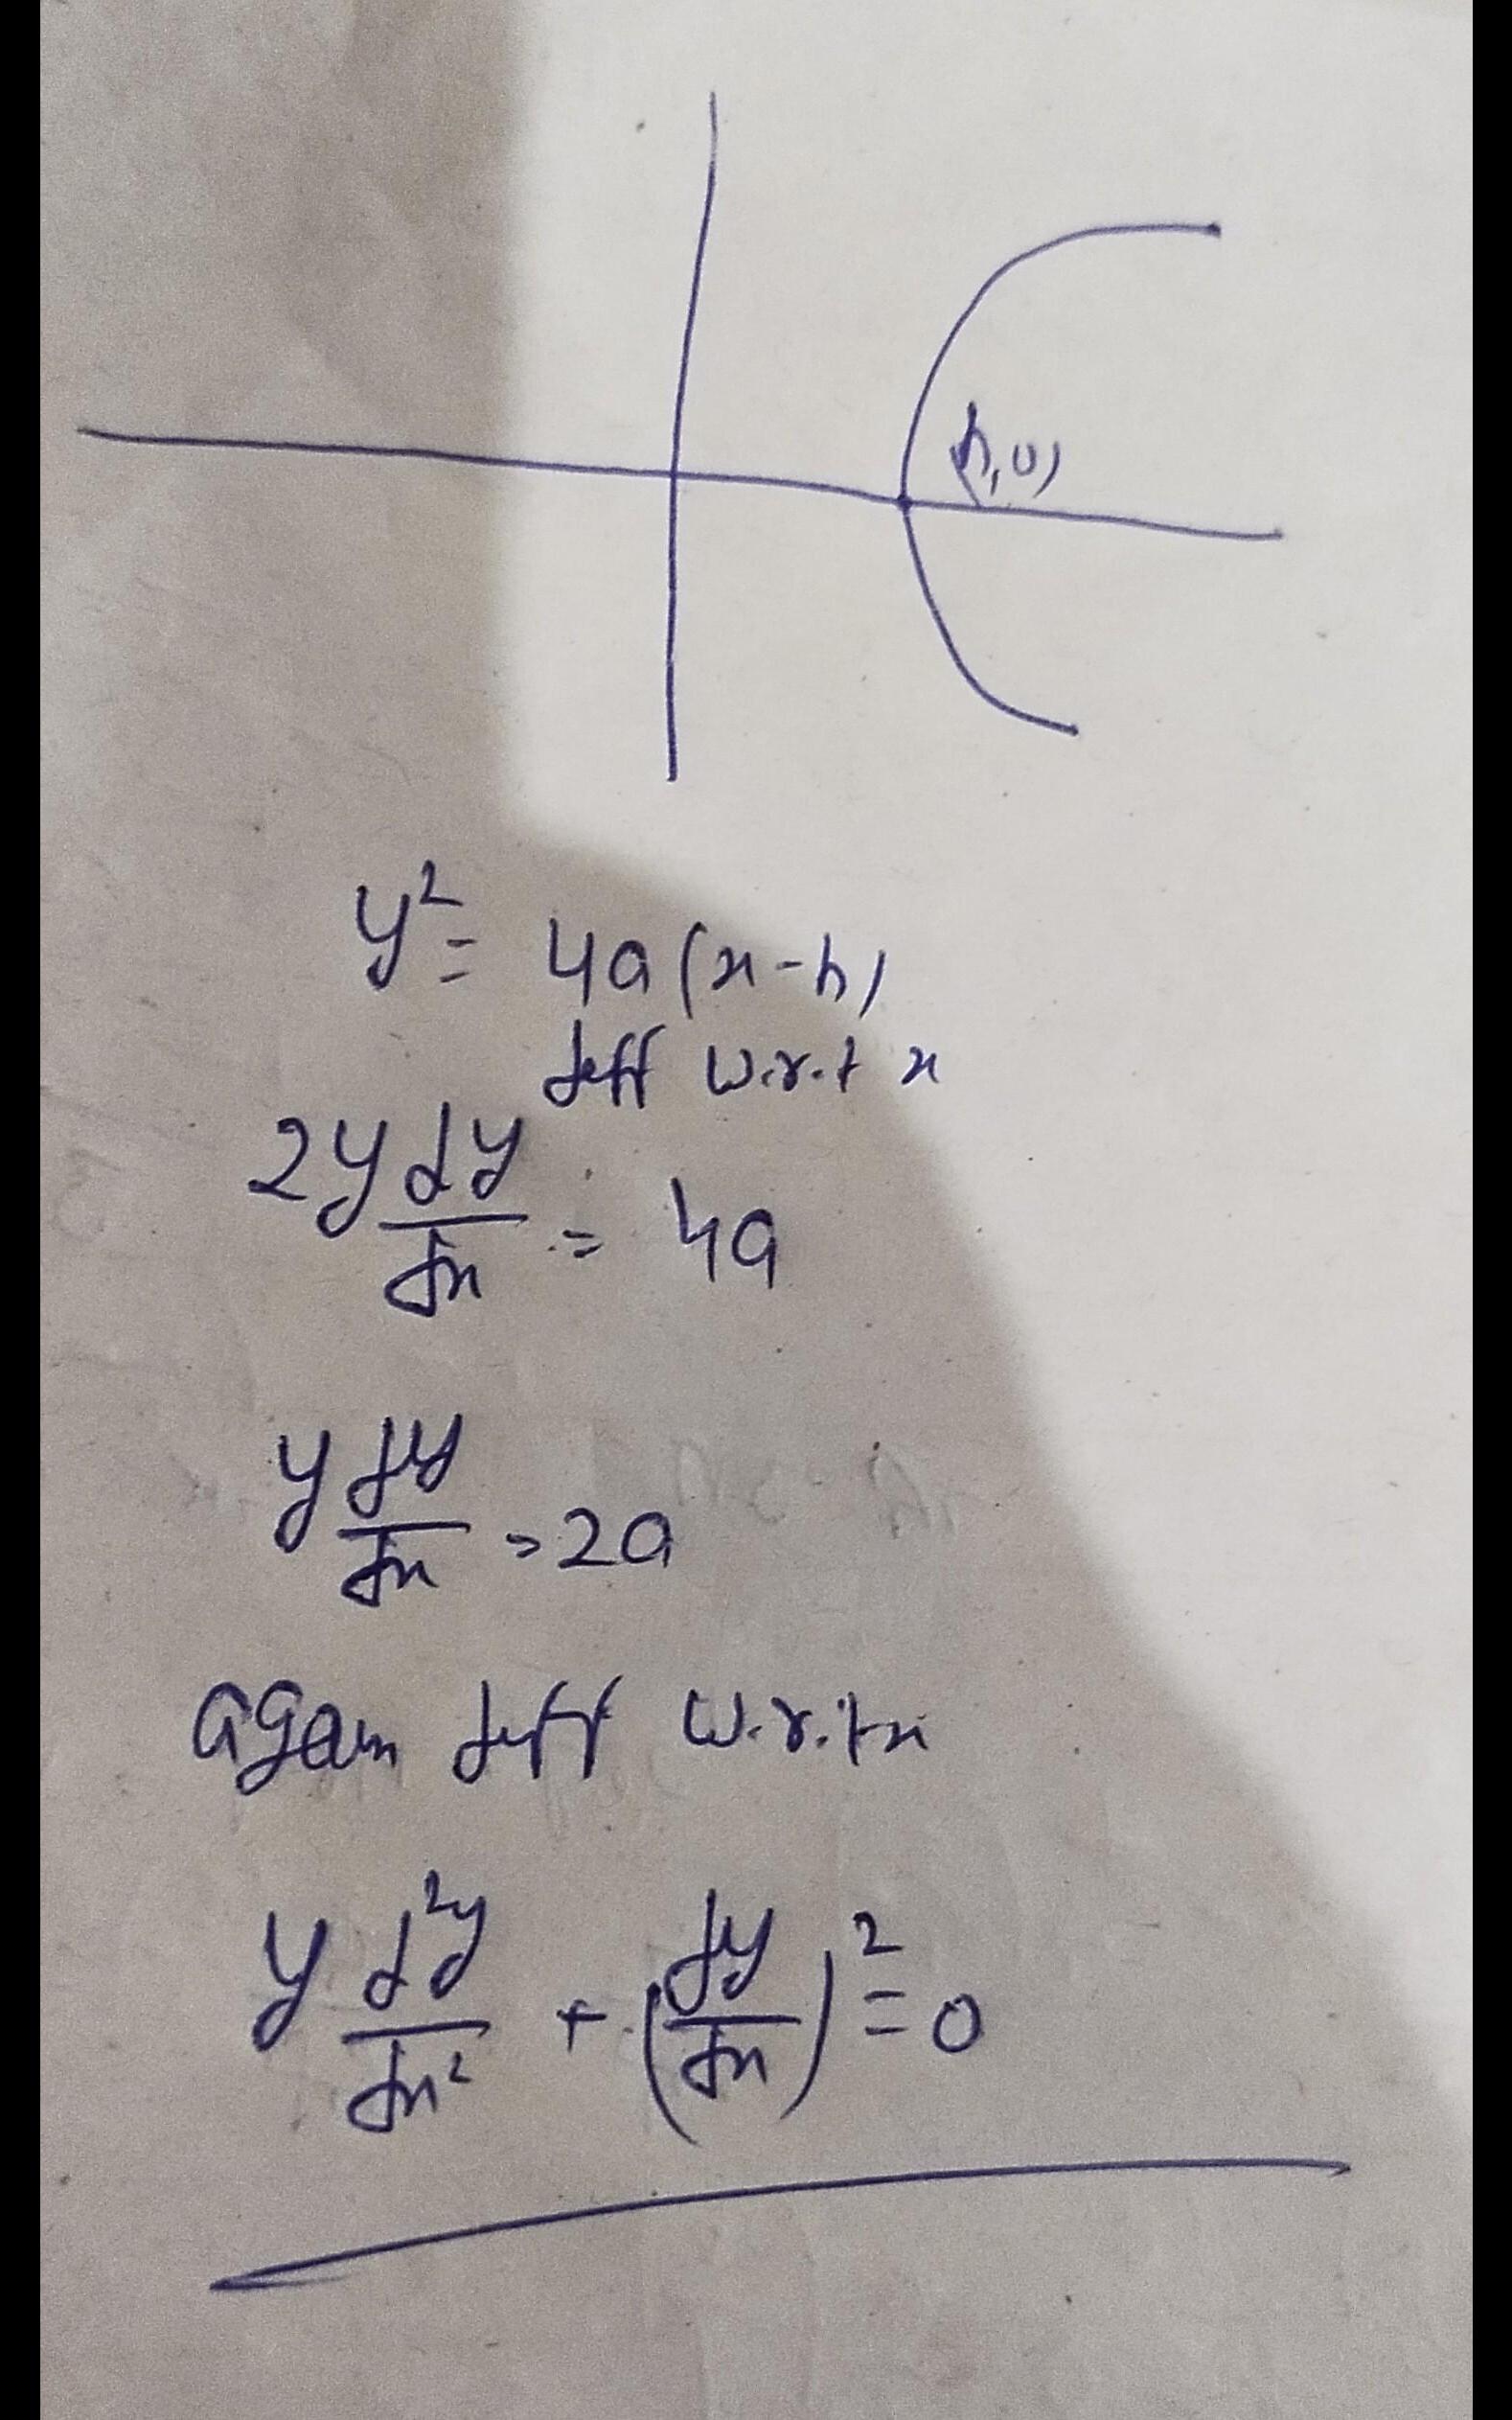 (h,0)
y² = 4a(x-h)
diff w.r.t x
2y dy/dx = 4a
y dy/dx = 2a
again diff w.r.t x
y d²y/dx² + (dy/dx)² = 0